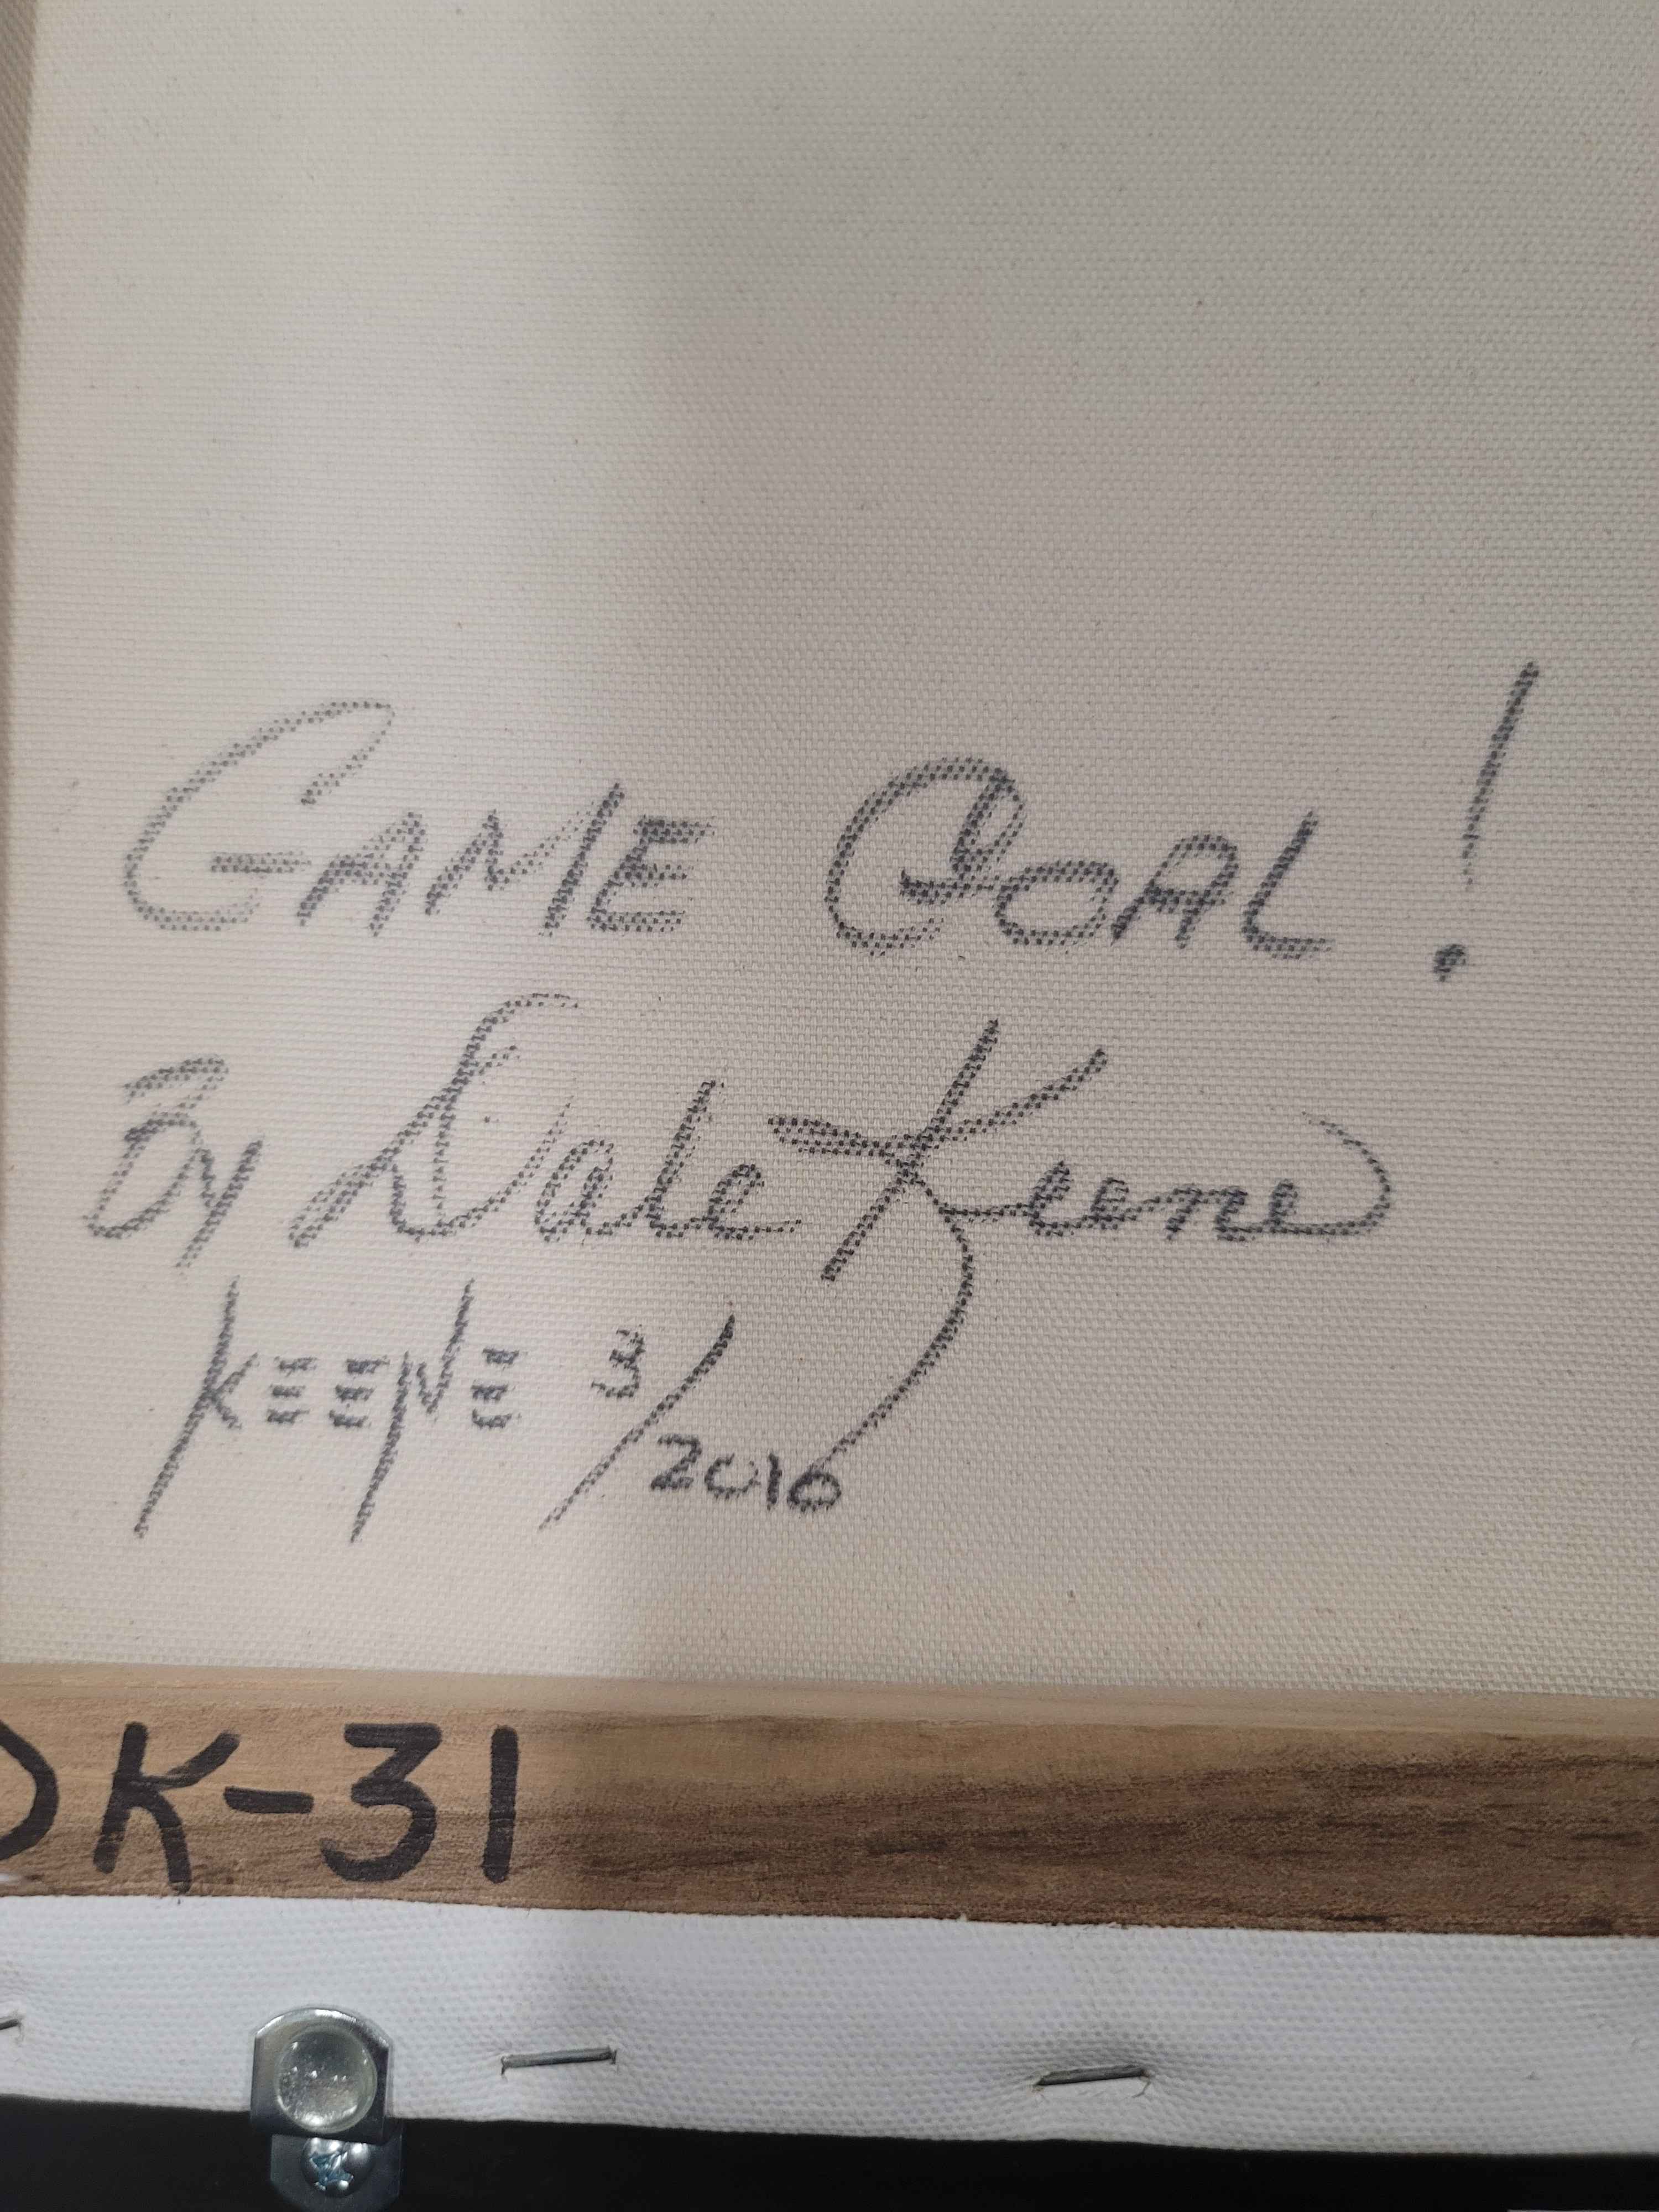 GAME GOAL!
By Dale Keene
KEENE 3/2016
DK-31